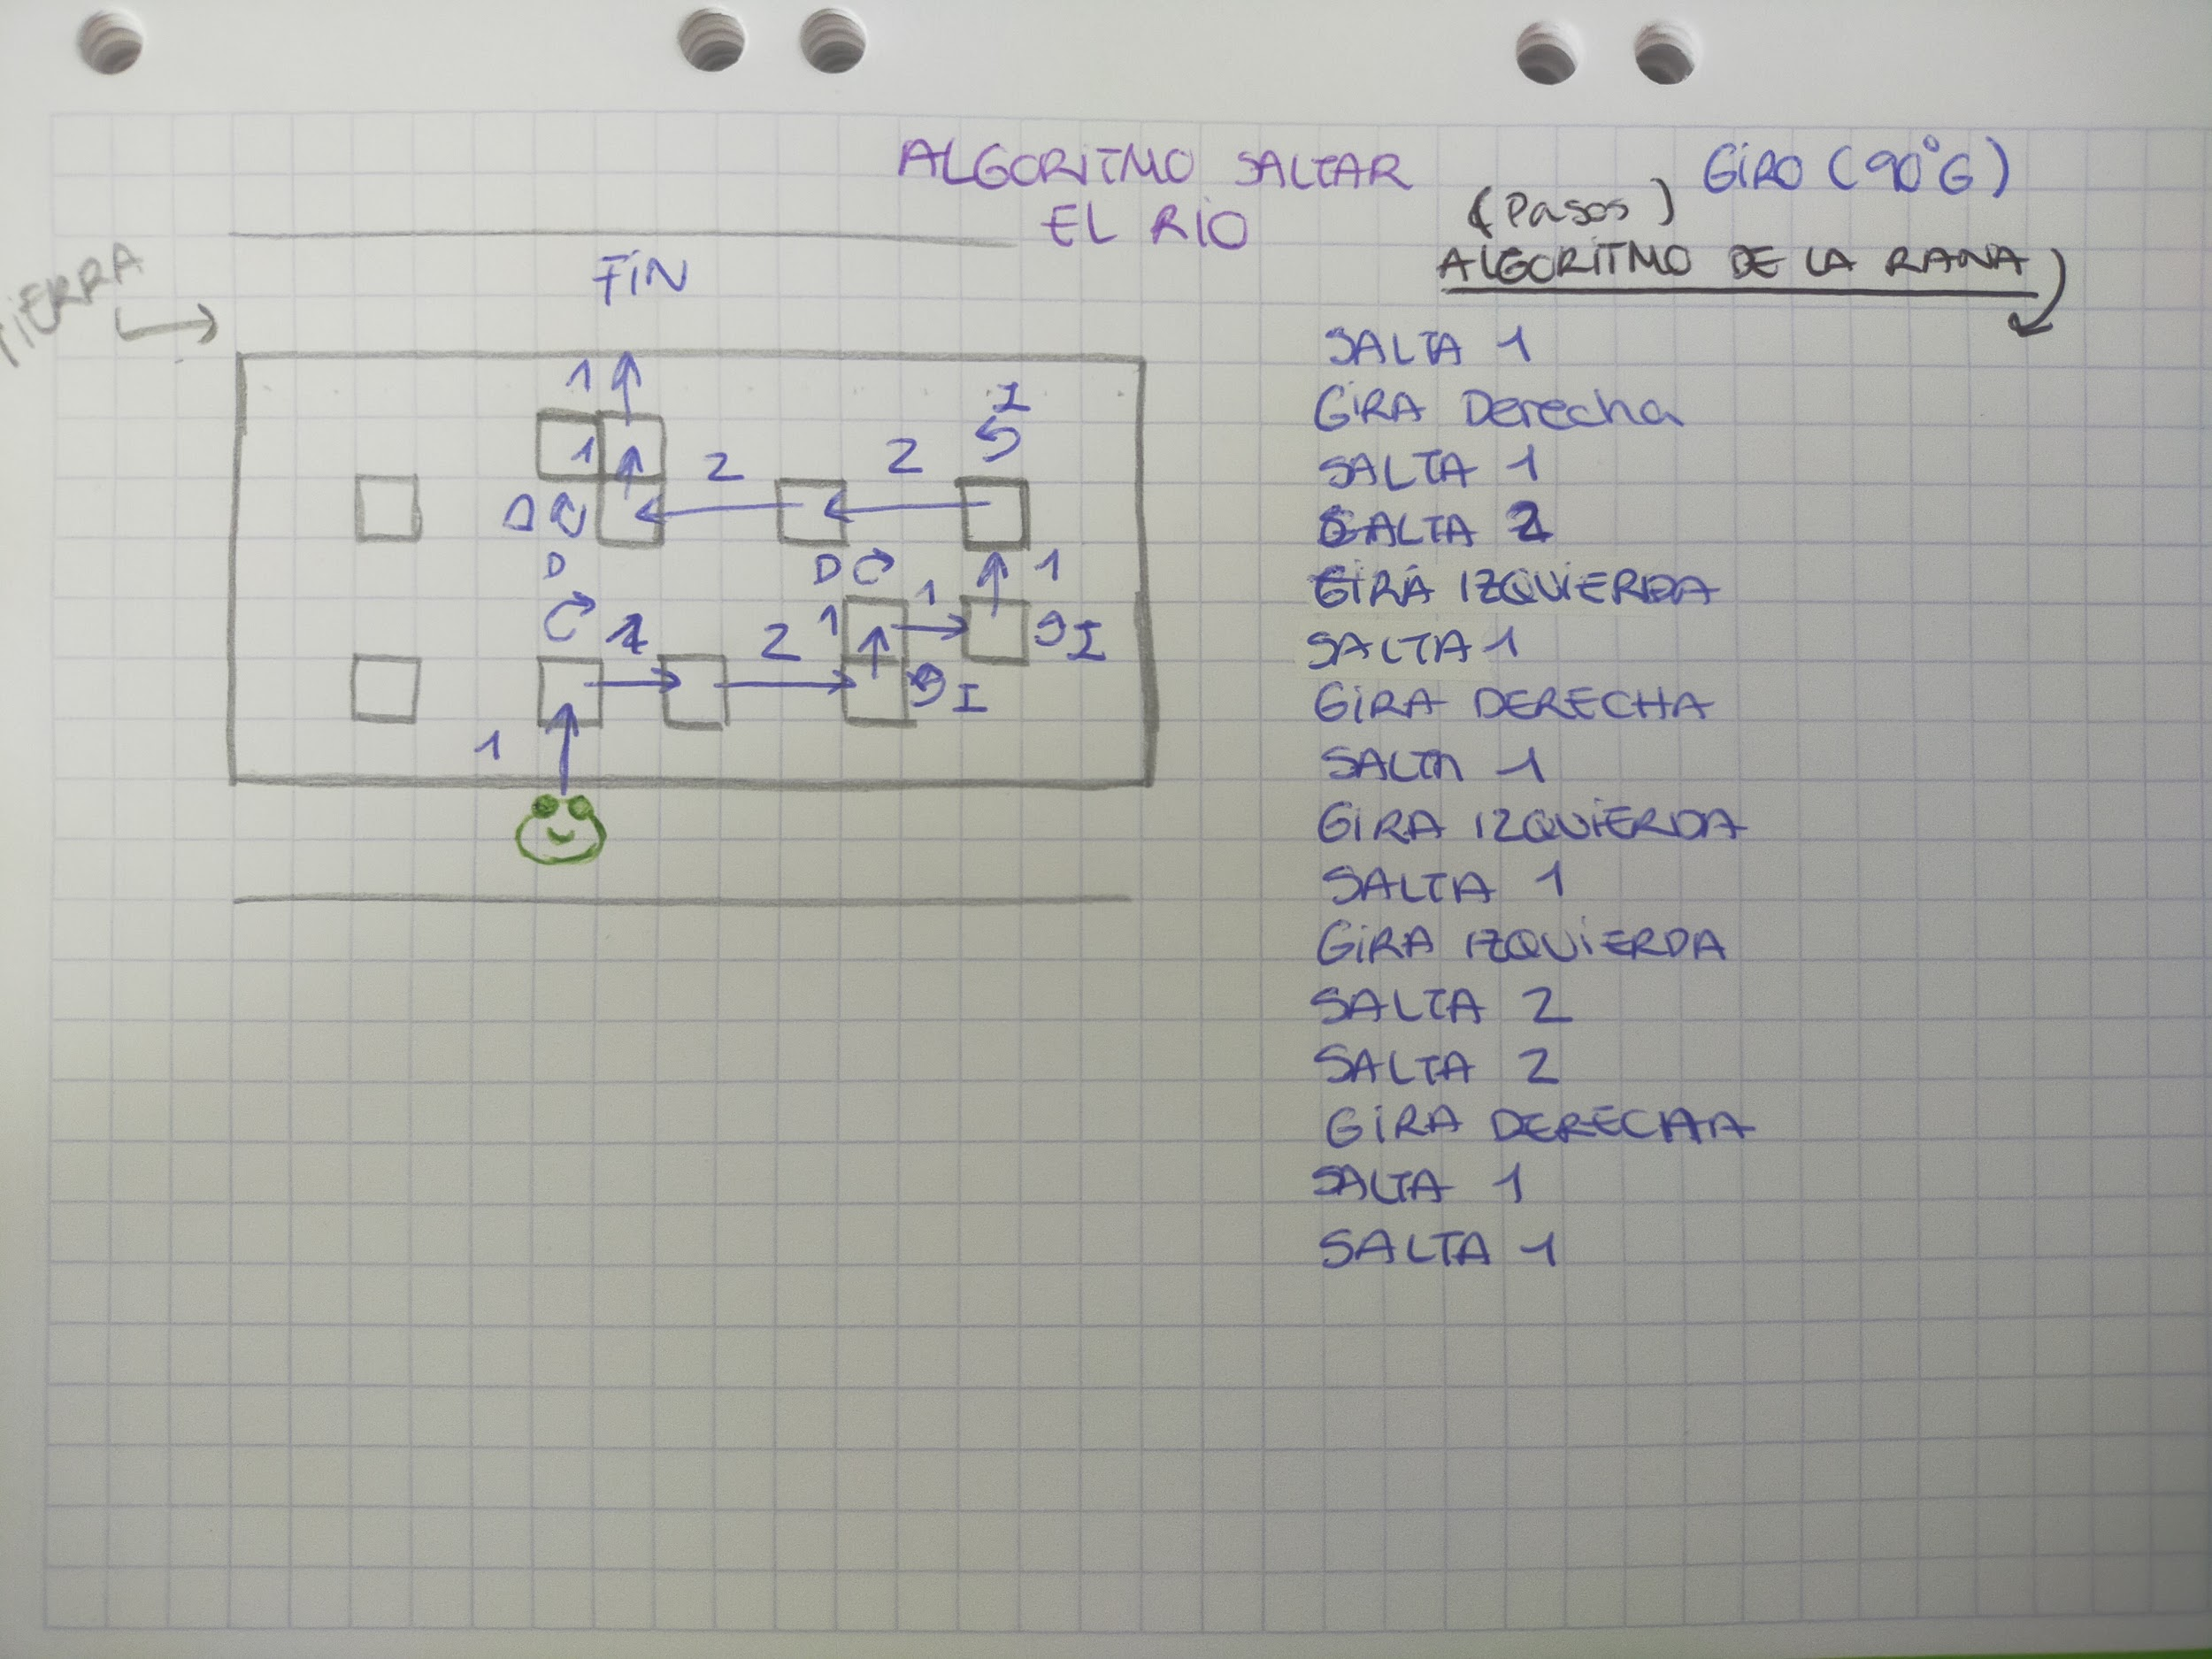 ALGORITMO SALTAR
EL RIO
GIRO (90°G)
(Pasos)
ALGORITMO DE LA RANA
TIERRA
FIN
1
I
1
2
2
D
D
D
1
1
1
1
2
1
I
I
1
SALTA 1
GIRA Derecha
SALTA 1
SALTA 2
GIRA IZQUIERDA
SALTA 1
GIRA DERECHA
SALTA 1
GIRA IZQUIERDA
SALTA 1
GIRA IZQUIERDA
SALTA 2
SALTA 2
GIRA DERECHA
SALTA 1
SALTA 1